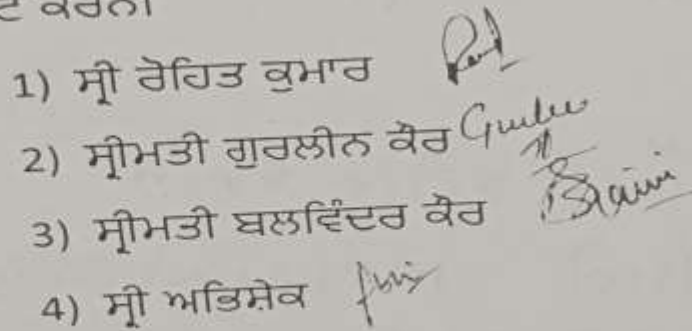 ਕਰਨਾ
1) ਸ੍ਰੀ ਰੋਹਿਤ ਕੁਮਾਰ
2) ਸ੍ਰੀਮਤੀ ਗੁਰਲੀਨ ਕੌਰ
3) ਸ੍ਰੀਮਤੀ ਬਲਵਿੰਦਰ ਕੌਰ
4) ਸ੍ਰੀ ਅਭਿਸ਼ੇਕ